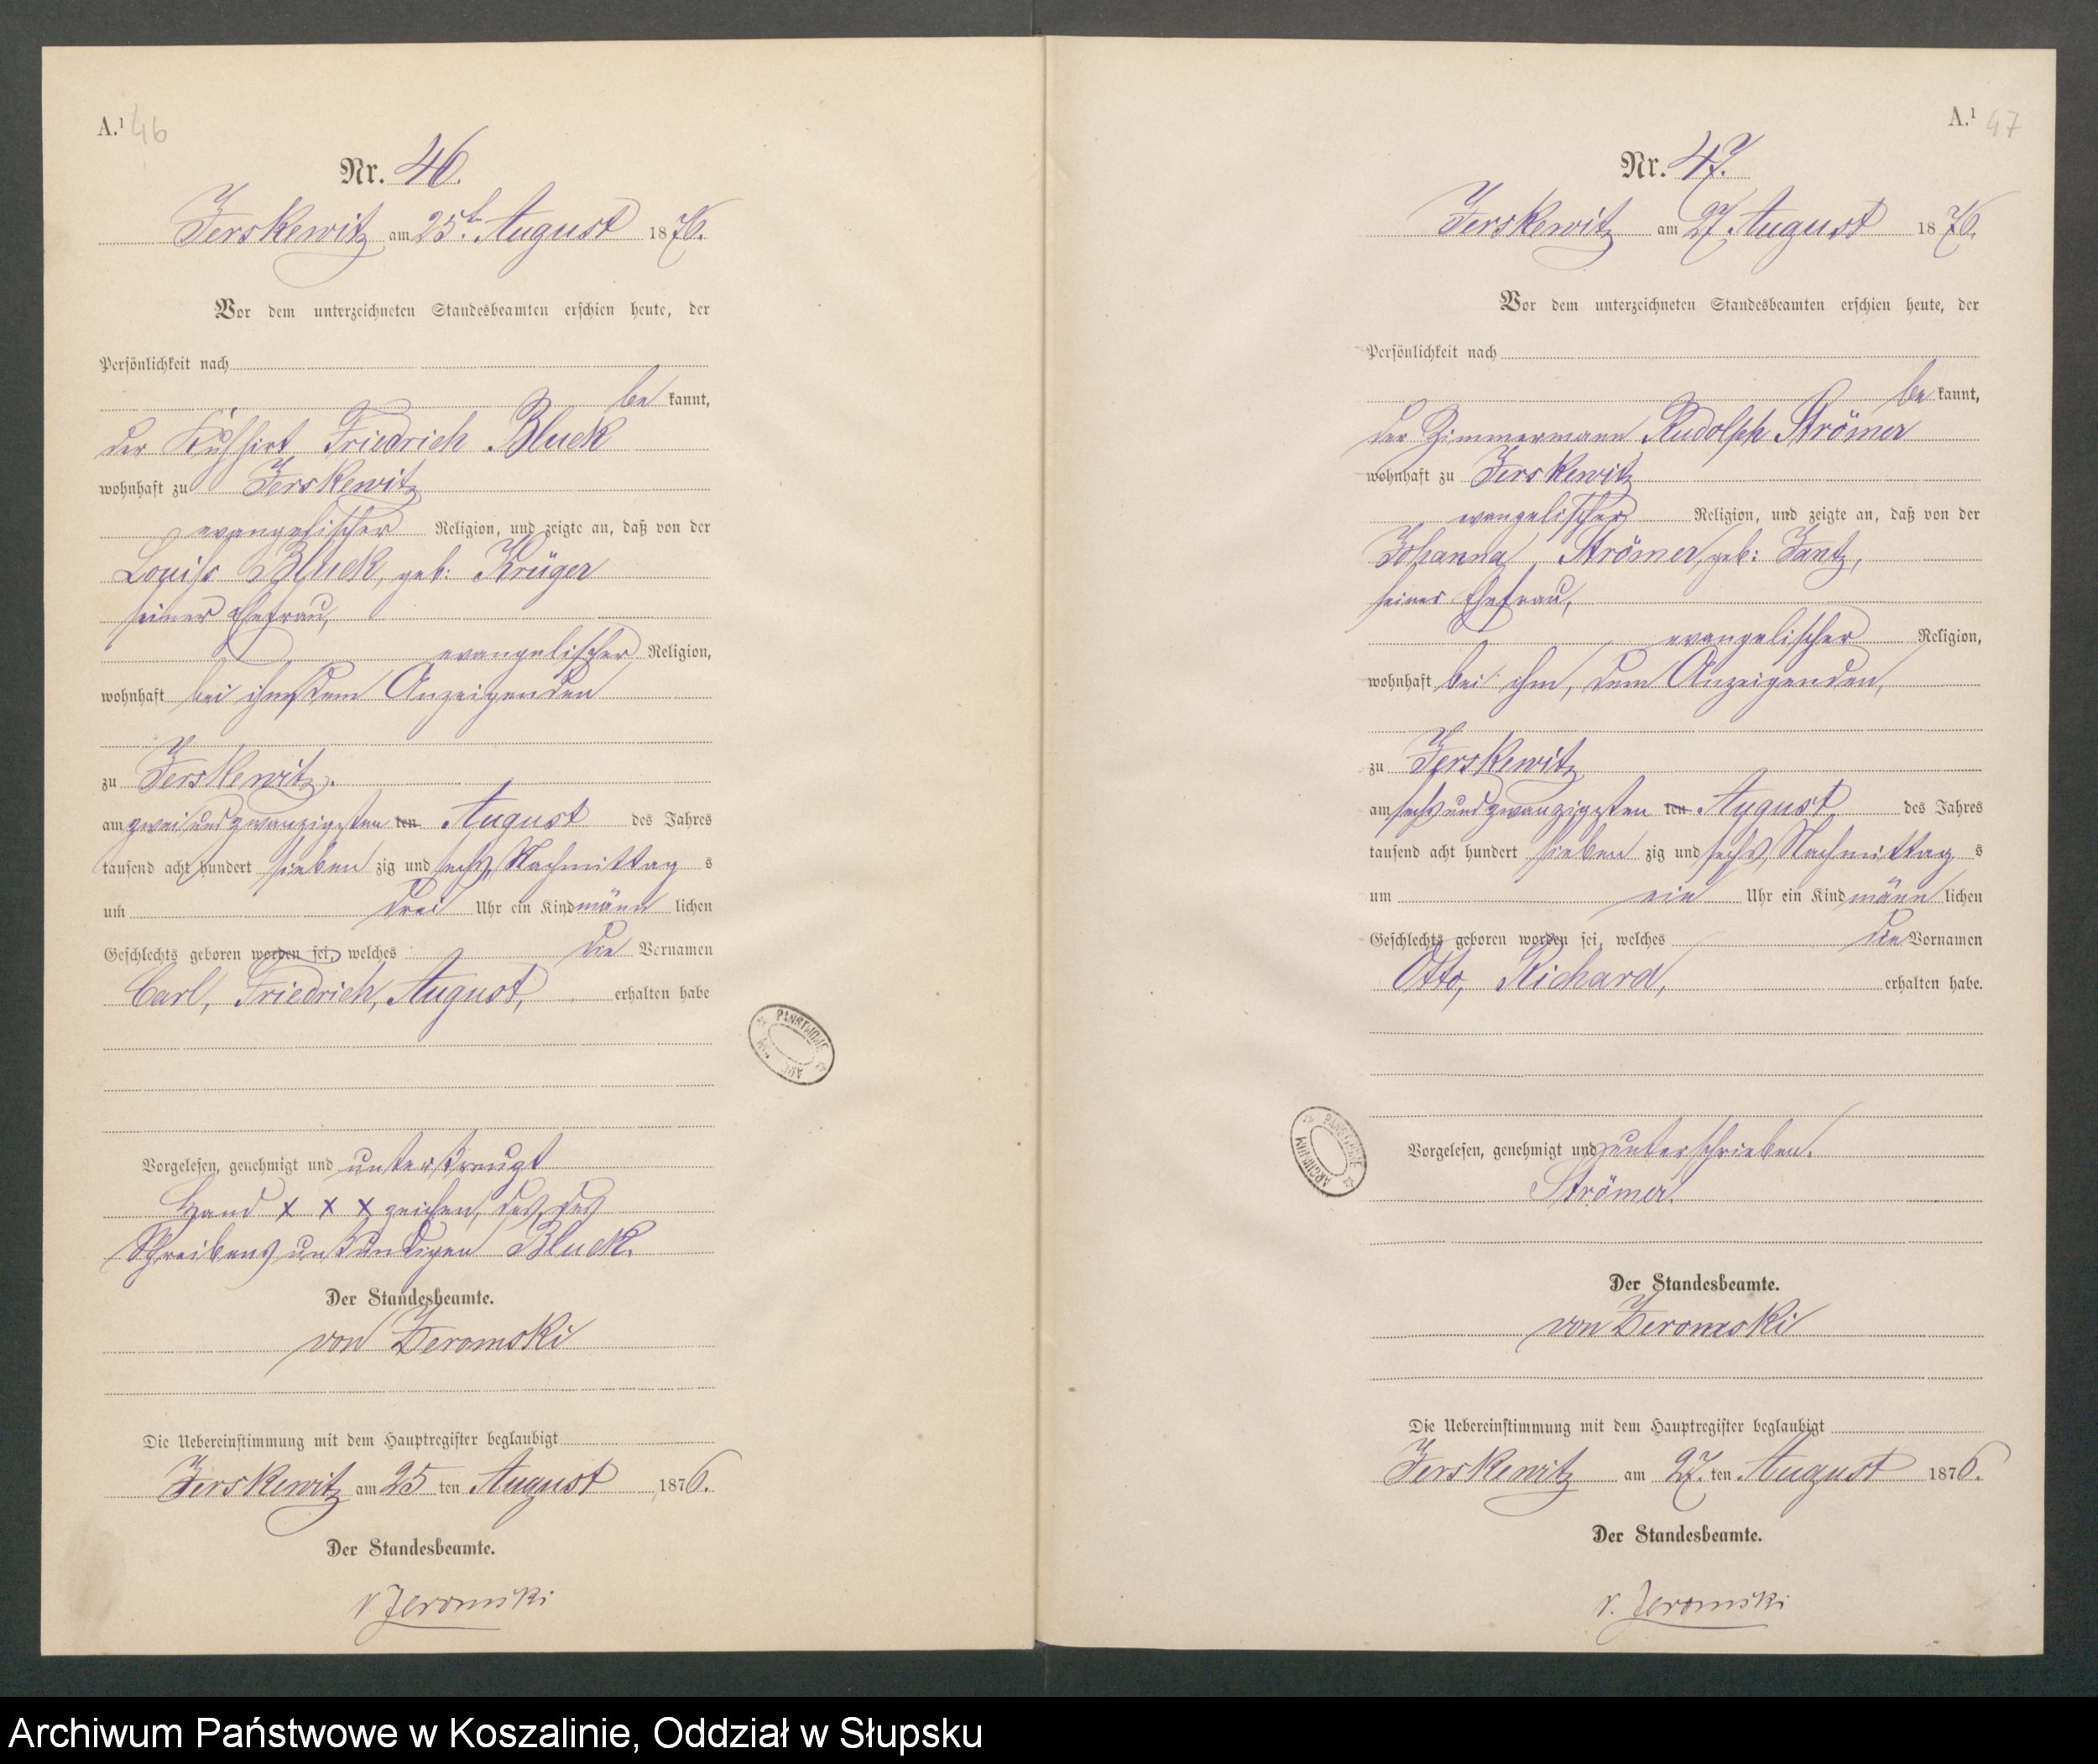 A.¹ 46
Nr. 46.
Jerskewitz am 25t. August 1876.
Vor dem unterzeichneten Standesbeamten erschien heute, der
Persönlichkeit nach
be kannt,
der Kuhhirt Friedrich Bluck
wohnhaft zu Jerskewitz
evangelischer Religion, und zeigte an, daß von der
Louise Bluck, geb: Krüger
seiner Ehefrau,
evangelischer Religion,
wohnhaft bei ihm, dem Anzeigenden
zu Jerskewitz.
am zweiundzwanzigsten ten August des Jahres
tausend acht hundert sieben zig und sechs, Nachmittag s
um drei Uhr ein Kind männ lichen
Geschlechts geboren worden sei, welches die Vornamen
Carl, Friedrich, August, erhalten habe
Vorgelesen, genehmigt und unterkreuzt
Hand x x x zeichen, des, des
Schreibens unkundigen Bluck.
Der Standesbeamte.
von Zeromski
Die Uebereinstimmung mit dem Hauptregister beglaubigt
Jerskewitz am 25 ten August 1876.
Der Standesbeamte.
v Zeromski
PAŃSTWOWE
A.¹ 47
Nr. 47.
Jerskewitz am 27. August 1876.
Vor dem unterzeichneten Standesbeamten erschien heute, der
Persönlichkeit nach
be kannt,
der Zimmermann Rudolph Strömer
wohnhaft zu Jerskewitz
evangelischer Religion, und zeigte an, daß von der
Johanna Strömer, geb: Jantz,
seiner Ehefrau,
evangelischer Religion,
wohnhaft bei ihm, dem Anzeigenden,
zu Jerskewitz
am sechsundzwanzigsten ten August des Jahres
tausend acht hundert sieben zig und sechs, Nachmittag s
um ein Uhr ein Kind männ lichen
Geschlechts geboren worden sei, welches die Vornamen
Otto, Richard, erhalten habe.
ARCHIWUM PAŃSTWOWE
Vorgelesen, genehmigt und unterschrieben.
Strömer.
Der Standesbeamte.
von Zeromski
Die Uebereinstimmung mit dem Hauptregister beglaubigt
Jerskewitz am 27. ten August 1876.
Der Standesbeamte.
v. Zeromski
Archiwum Państwowe w Koszalinie, Oddział w Słupsku